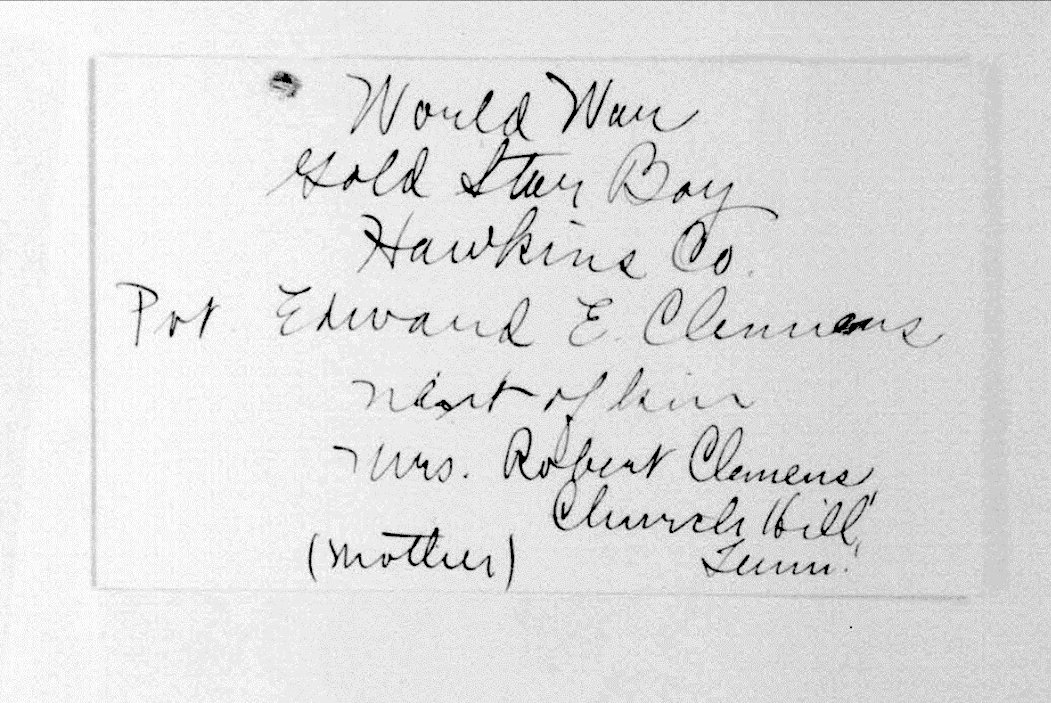 World War
Gold Star Boy
Hawkins Co.
Pvt. Edward E. Clemens
next of kin
Mrs. Robert Clemens
Church Hill,
(mother) Tenn.